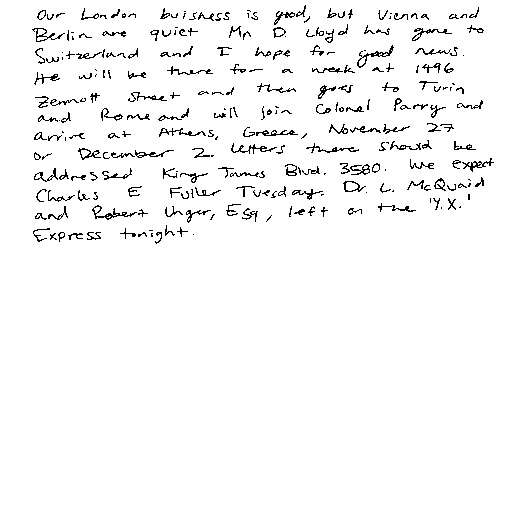 Our London buisness is good, but Vienna and
Berlin are quiet Mr. D. Lloyd has gone to
Switzerland and I hope for good news.
He will be there for a week at 1496
Zermott Street and then goes to Turin
and Rome and will join Colonel Parry and
arrive at Athens, Greece, November 27
or December 2. Letters there should be
addressed King James Blvd. 3580. We expect
Charles E Fuller Tuesday. Dr. L. McQuaid
and Robert Unger, Esq, left on the 'Y.X.'
Express tonight.